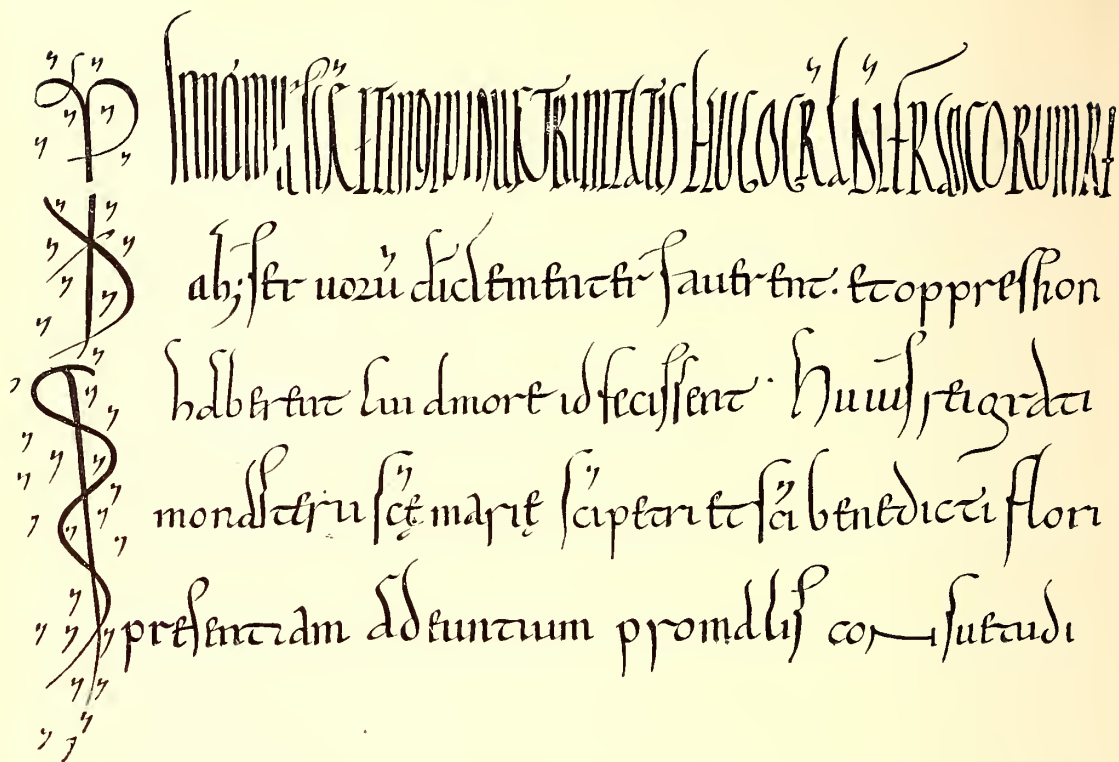 In nomine scę et indiuiduae trinitatis hugo gra di francorum re
ab; seruorū di clementer fauerent. et oppression
haberent cui amore id fecissent. Huius rei grati
monasterii scę marię sci petri et sci benedicti flori
presentiam adeuntium pro malis consuetudi